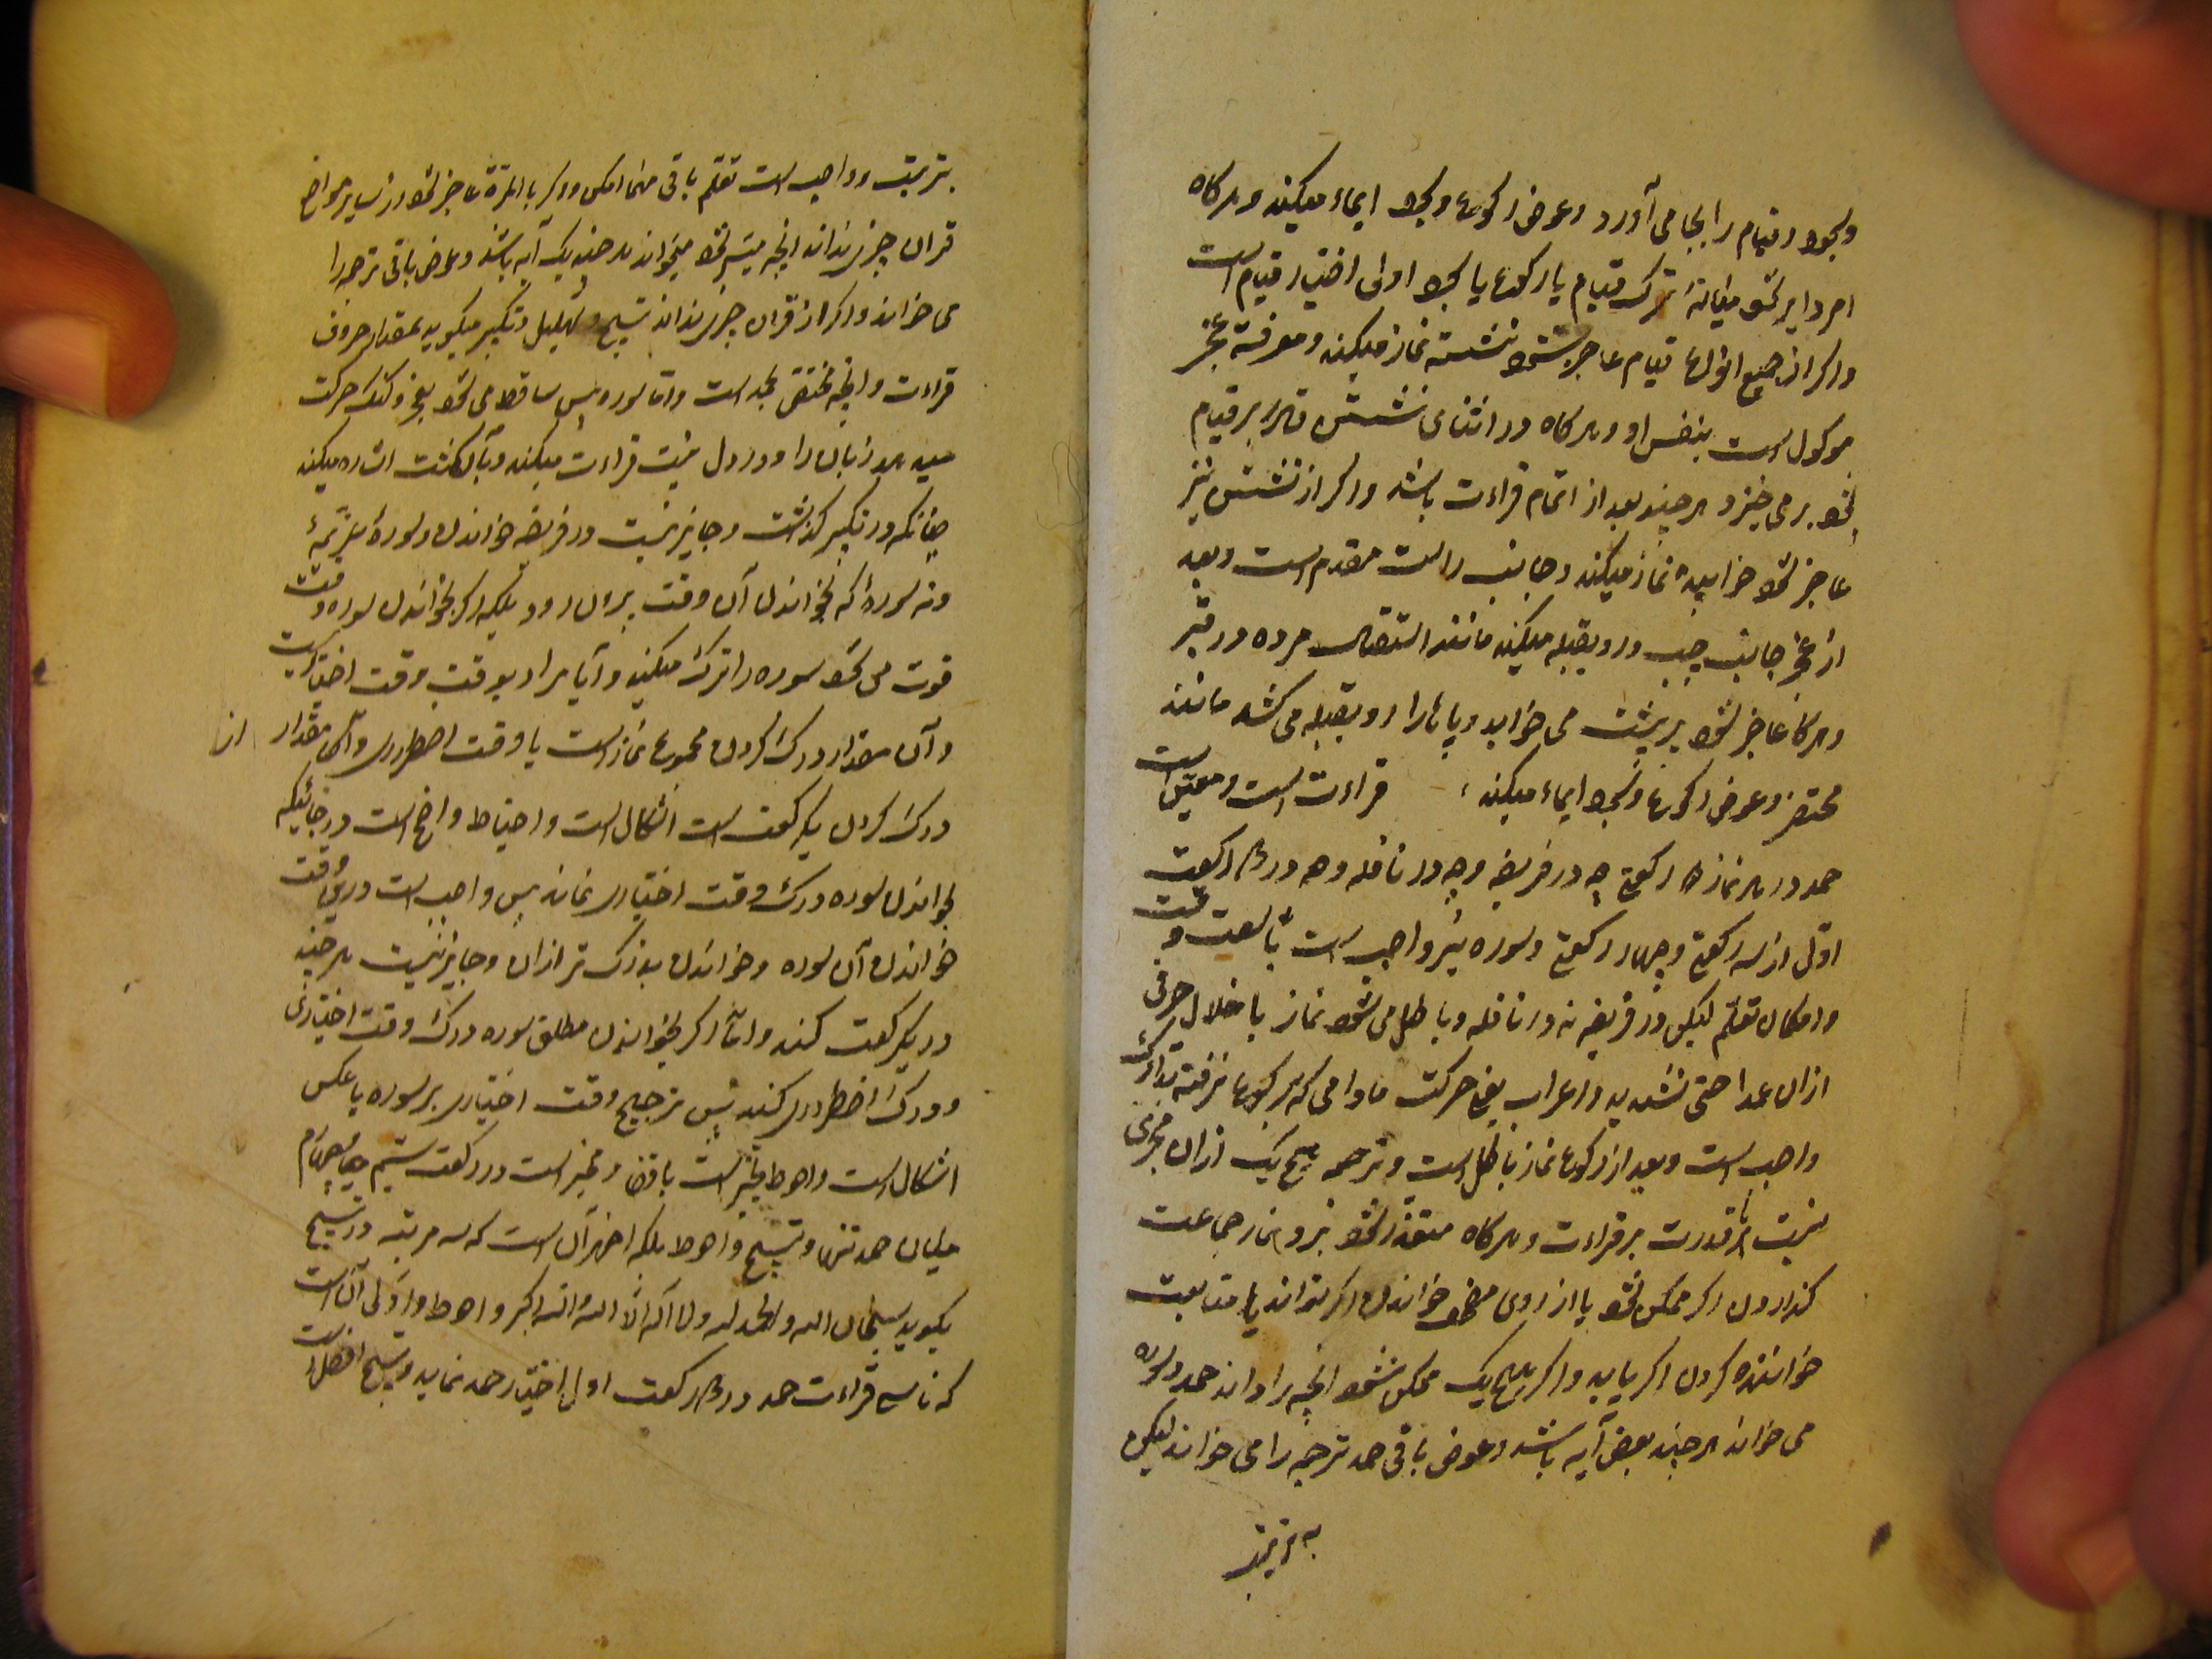 وسجود و قیام را بجا می آورد و عوض رکوع و سجود ایماء میکند و هرکاه
امر دایر شود میانهٔ ترک قیام یا رکوع یا سجود اولی اختیار قیام است
و اکر از جمیع انواع قیام عاجز شود نشسته نماز میکند و معرفت عجز
موکول است بنفس او و هرکاه در اثنای نشستن قادر بر قیام
شود بر می خیزد هر چند بعد از اتمام قراءت باشد و اکر از نشستن نیز
عاجز شود خوابیده نماز میکند و جانب راست مقدم است و بعد
از عجز جانب چپ و رو بقبله میکند مانند استقبال مرده در قبر
و هرکاه عاجز شود بر پشت می خوابد و پاها را رو بقبله می کشد مانند
محتضر و عوض رکوع و سجود ایماء میکند، قراءت است و معین است
حمد در هر نماز دو رکعتی چه در فریضه و چه در نافله و هم در دو رکعت
اول از سه رکعتی و چهار رکعتی و سوره نیز واجب است با سعت وقت
و امکان تعلم لیکن در فریضه نه در نافله و باطل می شود نماز با خلال حرفی
ازان عمدا حتی تشدید و اعراب یعنی حرکت مادامی که برکوع نرفته تدارک
واجب است و بعد از رکوع نماز باطل است و ترجمه هیچ یک ازان مجزی
نیست با قدرت بر قراءت و هرکاه متعذر شود بر او نماز جماعت
کذاردن اکر ممکن شود یا از روی مصحف خواندن اکر تواند یا متابعت
خواننده کردن اکر یابد و اکر هیچ یک ممکن نشود انچه را داند حمد و سوره
می خواند هر چند بعض آیه باشد و عوض باقی حمد ترجمه را می خواند لیکن
به ترتیب
بترتیب و واجب است تعلم باقی مهما امکن و اکر بالمرة عاجز شود و از سایر مواضع
قران چیزی نداند انچه میسر شود میخواند هر چند یک آیه باشد و عوض باقی ترجمه را
می خواند و اکر از قران چیزی نداند تسبیح و تهلیل و تکبیر میکوید بمقدار حروف
قراءت و انچه مختص بحمد است و اما سوره پس ساقط می شود بعجز و کنک حرکت
میدهد زبان را و در دل نیت قراءت میکند و بانکشت اشاره میکند
چنانکه در تکبیر کذشت و جایز نیست در فریضه خواندن سورهٔ عزیمهٔ
و نه سورهٔ که بخواندن آن وقت بیرون رود بلکه اکر بخواندن سوره وقت
فوت می شود سوره را ترک میکند و آیا مراد بوقت وقت اختیاریست
و آن مقدار درک کردن مجموع نماز است یا وقت اضطراری و آن مقدار از
درک کردن یک رکعت است اشکال است و احتیاط واضح است در جائیکه
بخواندن سوره درک وقت اختیاری نماند پس واجب است درین وقت
خواندن آن سوره و خواندن بزرک تر ازان و جایز نیست هر چند
در یک رکعت کند و اما اکر بخواندن مطلق سوره درک وقت اختیاری
و درک اضطراری کند پس ترجیح وقت اختیاری بر سوره یا عکس
اشکال است و احوط تخییر است با قضا و مخیر است در رکعت سیم و چهارم
میان حمد تنها و تسبیح و احوط بلکه اظهر آن است که سه مرتبه در تسبیح
بکوید سبحان الله والحمد لله ولا اله الا الله والله اکبر و احوط و اولی آن است
که ناسی قراءت حمد در دو رکعت اول اختیار حمد نماید و تسبیح افضل است